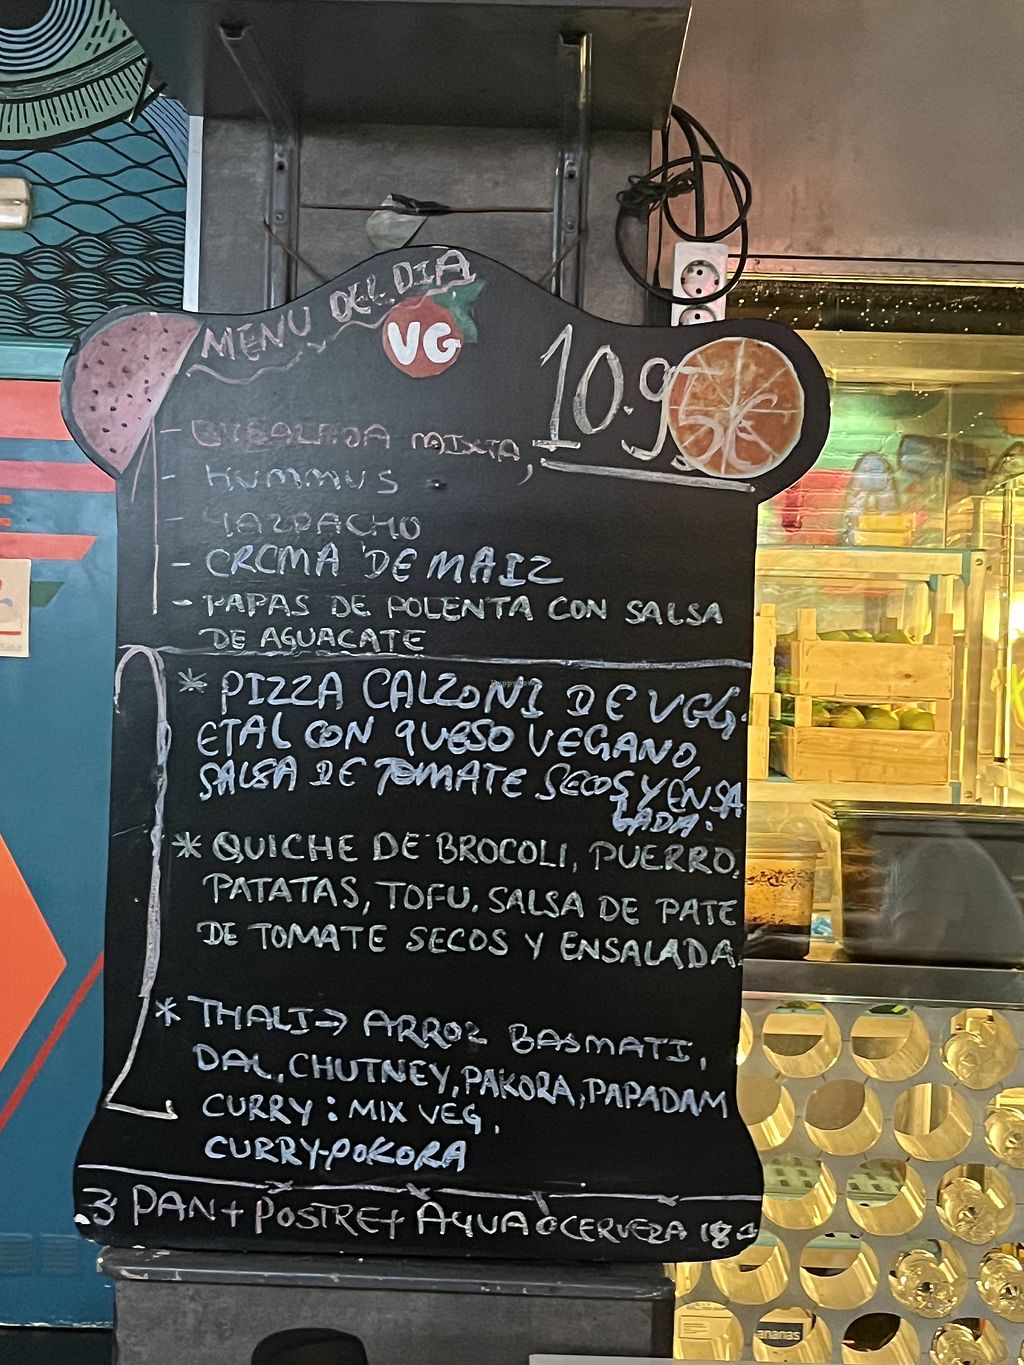 MENU DEL DIA
VG
10.95€
- ENSALADA MIXTA,
- HUMMUS
- GAZPACHO
- CREMA DE MAIZ
- PAPAS DE POLENTA CON SALSA
DE AGUACATE
* PIZZA CALZONI DE VEG-
ETAL CON QUESO VEGANO,
SALSA DE TOMATE SECOS Y ENSA
LADA.
* QUICHE DE BROCOLI, PUERRO,
PATATAS, TOFU. SALSA DE PATE
DE TOMATE SECOS Y ENSALADA.
* THALI → ARROZ BASMATI,
DAL, CHUTNEY, PAKORA, PAPADAM
CURRY: MIX VEG,
CURRY-POKORA
PAN + POSTRE + AGUA O CERVEZA
ananas